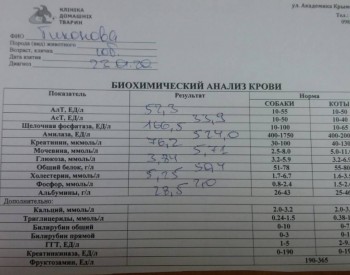 КЛИНИКА
ДОМАШНИХ
ТВАРИН
ул. Академика Крым
Тел.:
ФИО Тихонова
Порода (вид) животного
Возраст, кличка
Дата взятия
Диагноз
БИОХИМИЧЕСКИЙ АНАЛИЗ КРОВИ
Показатель Результат Норма
СОБАКИ КОТЫ
АлТ, ЕД/л 52,3 10-55 10-50
АсТ, ЕД/л 33,9 10-50 10-40
Щелочная фосфатаза, ЕД/л 166,5 10-100 10-65
Амилаза, ЕД/л 524,0 400-1750 400-200
Креатинин, мкмоль/л 76,2 30-100 40-130
Мочевина, ммоль/л 5,71 2.5-8.0 5.0-11.
Глюкоза, ммоль/л 3,84 3.2-5.9 3.2-6.5
Общий белок, г/л 51-78 55-80
Холестерин, ммоль/л 5,25 1.7-6.7 1.6-3.
Фосфор, ммоль/л 2,0 0.8-2.4 1.5-2.
Альбумины, г/л 28,5 26-43 24-40
Дополнительно:
Кальций, ммоль/л 2.0-3.2 2.0-3.
Триглицериды, ммоль/л 0.24-1.5 0.38-1
Билирубин общий 0-10 0-7
Билирубин прямой 0-3 0-1
ГГТ, ЕД/л 1-5 2-9
Креатинкиназа, ЕД/л 0-190 0-15
Фруктозамин, ЕД/л 190-365